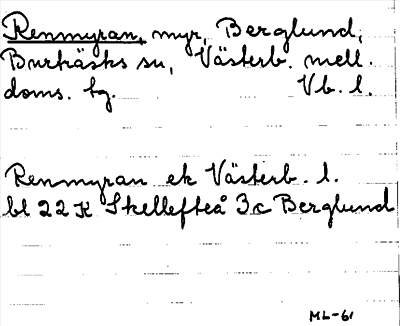 Renmyran, myr, Berglund,
Burträsks sn, Västerb. mell.
doms. tg. Vb. l.
Renmyran ek Västerb. l.
bl 22 K Skellefteå 3c Berglund
ML-61